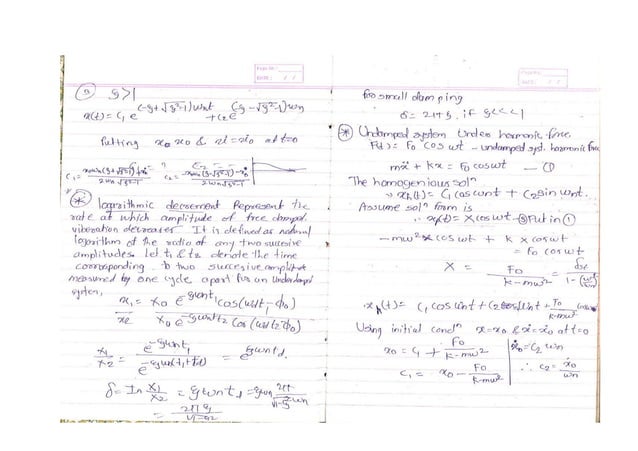 ⓐ ξ>1
x(t) = c₁ e^(-ξ+√ξ²-1)ωnt + c₂e^(-ξ-√ξ²-1)ωn
Putting x₀ & at t=0
c₁ = c₂ =
2ωn√ξ²-1 2ωn√ξ²-1
logarithmic decrement Represent the
rate at which amplitude of free damped
vibration decreases It is defined as natural
logarithm of the ratio of any two succesive
amplitudes. let t₁ & t₂ denote the time
corrosponding to two succesive amplitude
measured by one cycle apart for an Underdamped
system,
x₁/x₂ = x₀ e^-ξωnt₁ cos(ωdt₁-ϕ₀) / x₀ e^-ξωnt₂ cos(ωdt₂-ϕ₀)
x₁/x₂ = e^-ξωnt₁ / e^-ξωn(t₁+td) = e^ξωntd
δ = In x₁/x₂ = ξωntd = ξωn 2π/√1-ξ² ωn
= 2πξ/√1-ξ²
for small damping
δ = 2πξ, if ξ<<<1
Undamped system Under harmonic force
F(t) = F₀ cos ωt - undamped syst. harmonic force
mẍ + kx = F₀ cosωt — ①
The homogenious solⁿ
xₕ(t) = C₁ cosωnt + C₂sin ωnt.
Assume solⁿ form is
∴ xp(t) = X cosωt -② Put in ①
-mω²X cos ωt + k X cosωt
= F₀ cosωt
X = F₀/k-mω² = δst/1-(ω/ωn)²
xₕ(t) = C₁ cos ωnt + C₂ ωnt + F₀/k-mω²
Using initial condⁿ x=x₀ & ẋ=ẋ₀ at t=0
x₀ = C₁ + F₀/k-mω² ẋ₀ = C₂ ωn
C₁ = x₀ - F₀/k-mω² ∴ C₂ = ẋ₀/ωn